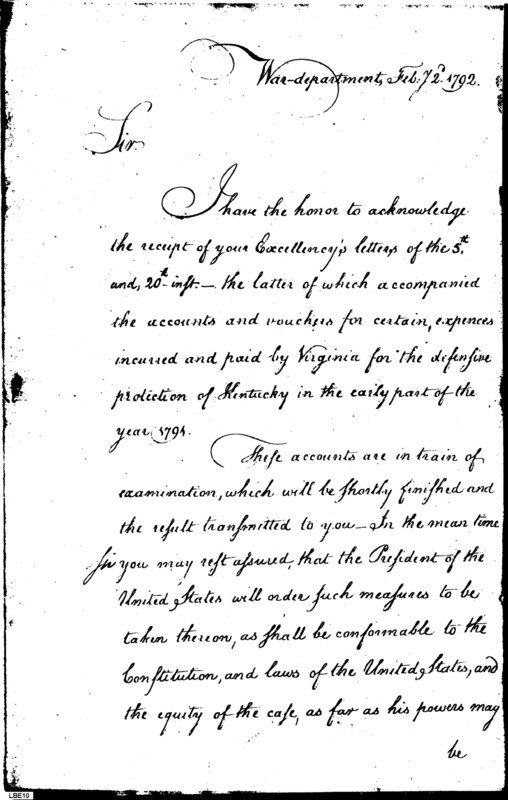 War-department, Feb: 2d. 1792.
Sir
I have the honor to acknowledge
the receipt of your Excellency's letters of the 5th.
and, 20th inst. — the latter of which accompanied
the accounts and vouchers for certain, expences
incurred and paid by Virginia for the defensive
protection of Kentucky in the early part of the
year 1791.
These accounts are in train of
examination, which will be shortly finished and
the result transmitted to you — In the mean time
Sir you may rest assured, that the President of the
United States will order such measures to be
taken thereon, as shall be conformable to the
Constitution, and laws of the United States, and
the equity of the case, as far as his powers may
be
LBE10